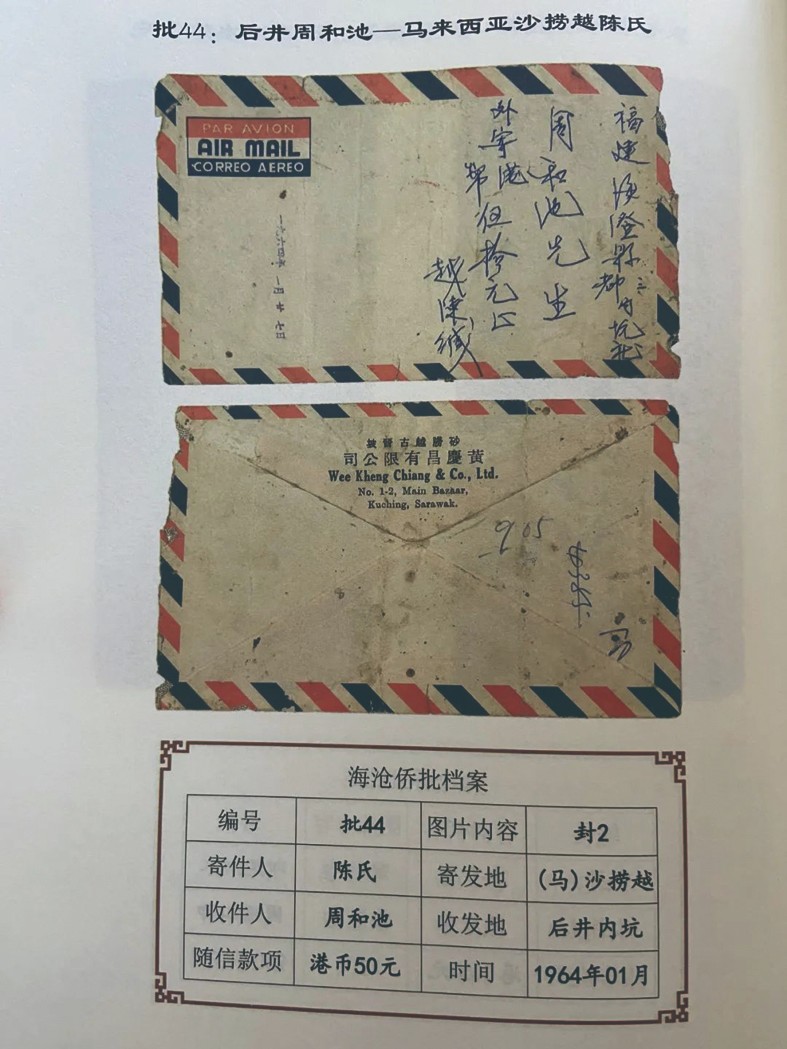 批44：后井周和池—马来西亚沙捞越陈氏
PAR AVION
AIR MAIL
CORREO AEREO
福建海澄县三都内坑社
周和池先生
外寄港币伍拾元正
越陈缄
砂朥越古晋坡
黄慶昌有限公司
Wee Kheng Chiang & Co., Ltd.
No. 1-2, Main Bazaar,
Kuching, Sarawak.
905
海沧侨批档案
编号 批44 图片内容 封2
寄件人 陈氏 寄发地 (马)沙捞越
收件人 周和池 收发地 后井内坑
随信款项 港币50元 时间 1964年01月